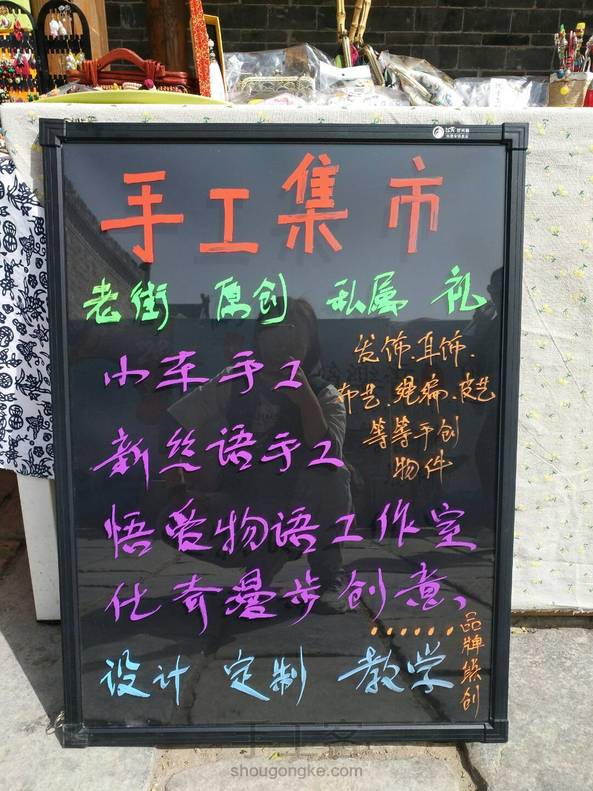 手工集市
老街 原创 私属 礼
小车手工
发饰、耳饰、
布艺、绳编、皮艺
等等手创
物件
新丝语手工
悟爱物语工作室
化奇漫步创意、
......
品牌集创
设计 定制 教学
手工客
shougongke.com